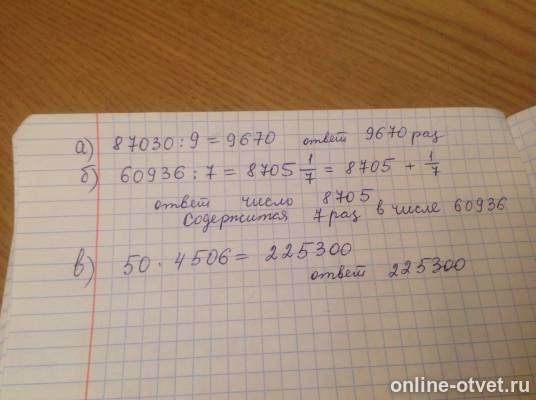 а) 87030 : 9 = 9670 ответ 9670 раз
б) 60936 : 7 = 8705 1/7 = 8705 + 1/7
ответ число 8705
содержится 7 раз в числе 60936
в) 50 · 4506 = 225300
ответ 225300
online-otvet.ru